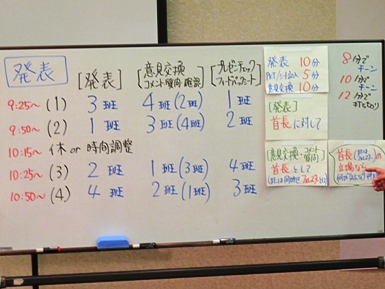 発表
[発表] [意見交換] [プレゼンチェック
コメント・質問・確認] フィードバックシート]
9:25~ (1) 3班 4班(2班) 1班
9:50~ (2) 1班 3班(4班) 2班
10:15~ 休 or 時間調整
10:25~ (3) 2班 1班(3班) 4班
10:50~ (4) 4班 2班(1班) 3班
発表 10分
5分
意見交換 10分
8分で
チーン
10分で
チーン
12分で
打ちきり
[発表]
首長に対して
[意見交換:
首長として
首長
立場なら